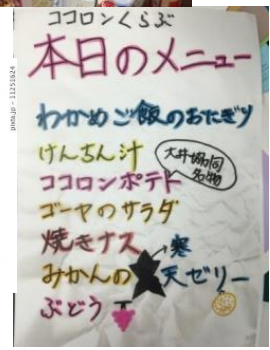 ココロンくらぶ
本日のメニュー
わかめご飯のおにぎり
けんちん汁
大井協同
名物
ココロンポテト
ゴーヤのサラダ
焼きナス
みかんの
寒
天ゼリー
ぶどう
pixta.jp - 11251624